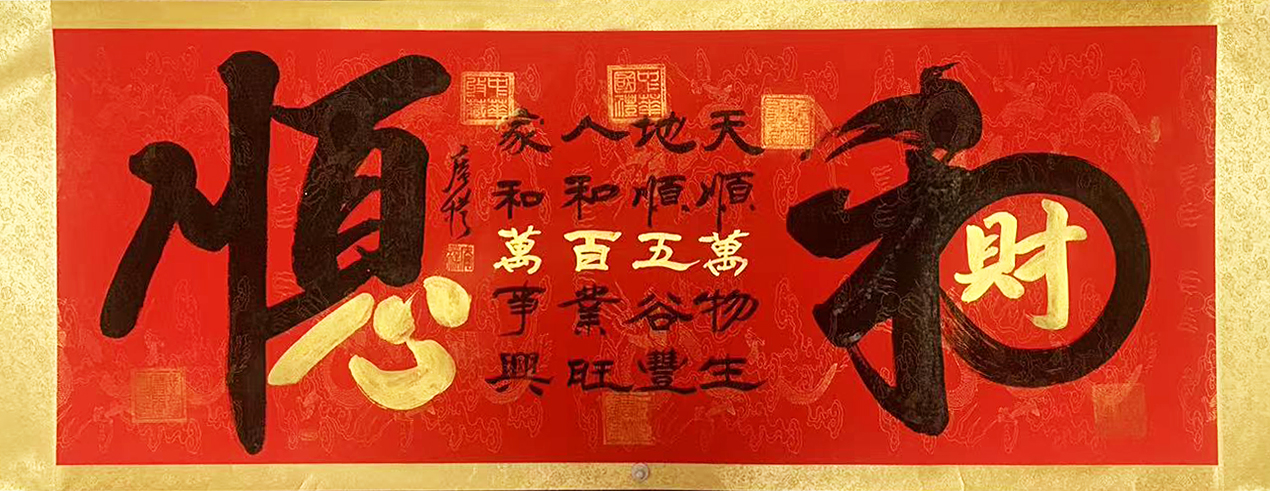 和
財
天順萬物生
地順五谷豐
人和百業旺
家和萬事興
順
心